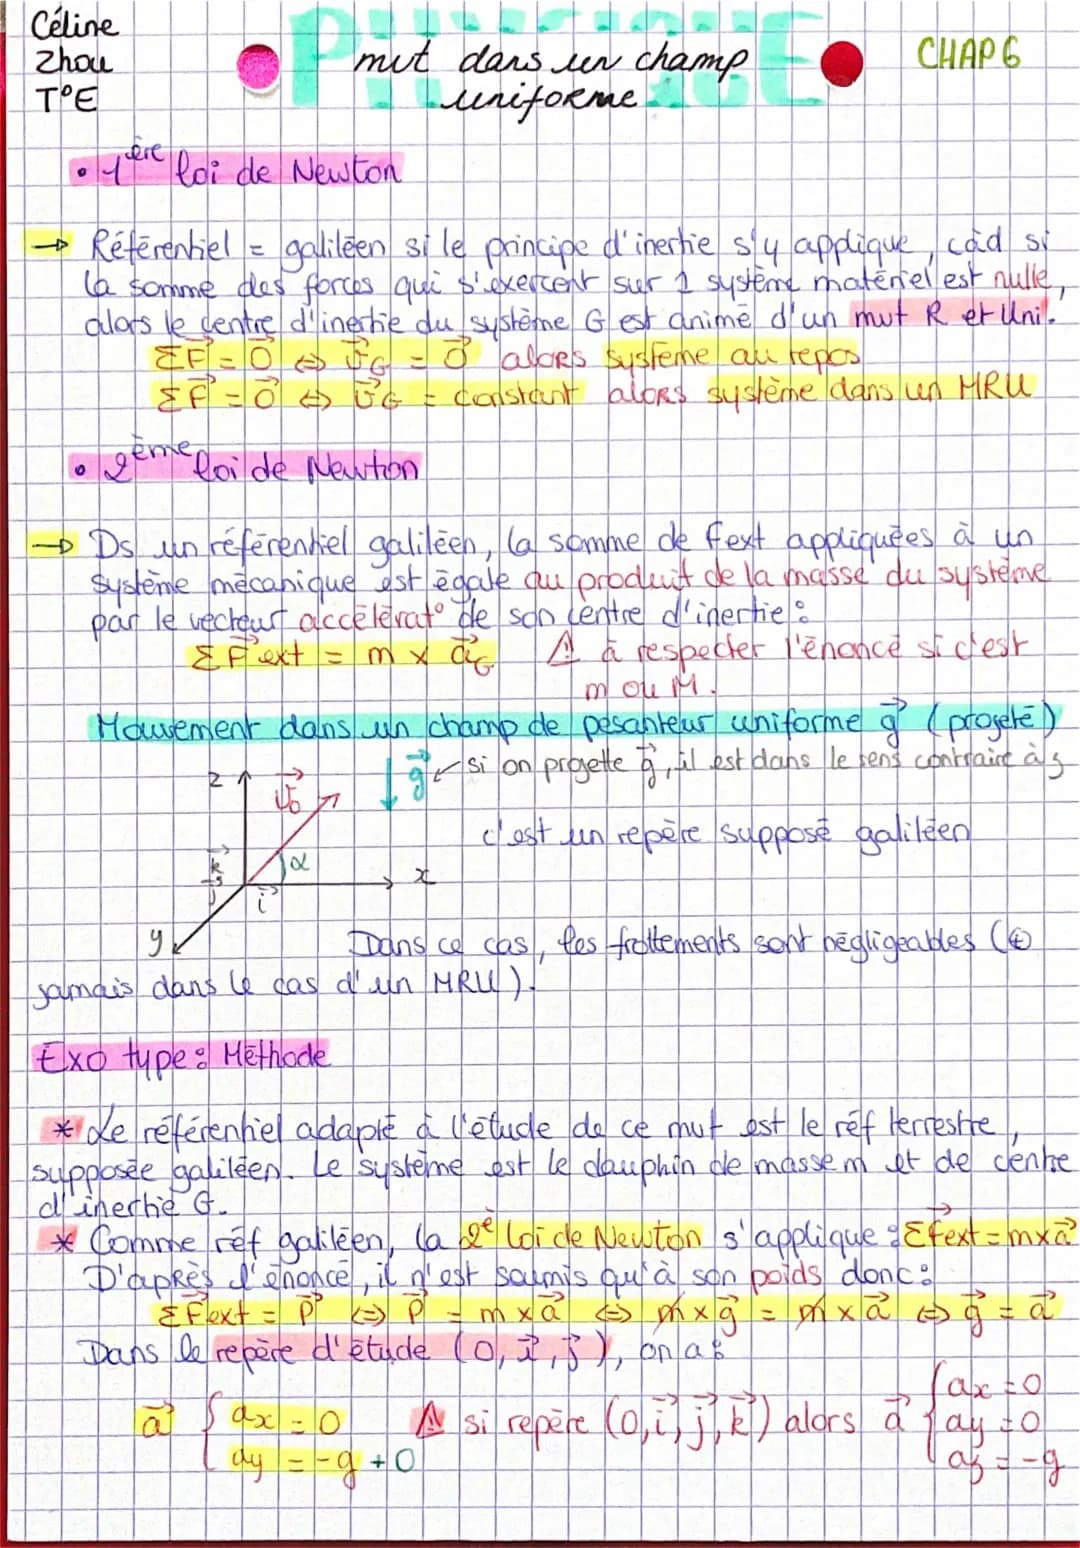 Céline
Zhou
T°E
PHYSIQUE
mvt dans un champ
uniforme
CHAP 6
• 1ère loi de Newton
→ Référentiel = galiléen si le principe d'inertie s'y applique, càd si
la somme des forces qui s'exercent sur 1 système matériel est nulle,
alors le centre d'inertie du système G est animé d'un mvt R et Uni.
ΣF⃗ = 0⃗ ⇔ v⃗G = 0⃗ alors système au repos
ΣF⃗ = 0⃗ ⇔ v⃗G = constant alors système dans un MRU
• 2ème loi de Newton
→ Ds un référentiel galiléen, la somme de fext appliquées à un
système mécanique est égale au produit de la masse du système
par le vecteur accélérat° de son centre d'inertie :
ΣF⃗ext = m x a⃗G ⚠ à respecter l'énoncé si c'est
m ou M.
Mouvement dans un champ de pesanteur uniforme g⃗ (projeté)
z v⃗0 g⃗ si on projette g⃗, il est dans le sens contraire à z
c'est un repère supposé galiléen
k⃗ α x
j⃗ i⃗
y
Dans ce cas, les frottements sont négligeables (⊕
jamais dans le cas d'un MRU).
Exo type : Méthode
* Le référentiel adapté à l'étude de ce mvt est le réf terrestre,
supposée galiléen. Le système est le dauphin de masse m et de centre
d'inertie G.
* Comme réf galiléen, la 2e loi de Newton s'applique : ΣF⃗ext = m x a⃗
D'après l'énoncé, il n'est soumis qu'à son poids donc :
ΣF⃗ext = P⃗ ⇔ P⃗ = m x a⃗ ⇔ m x g⃗ = m x a⃗ ⇔ g⃗ = a⃗
Dans le repère d'étude (O, i⃗, j⃗), on a :
a⃗ { ax = 0 ⚠ si repère (O, i⃗, j⃗, k⃗) alors a⃗ { ax = 0
ay = -g + 0 ay = 0
az = -g